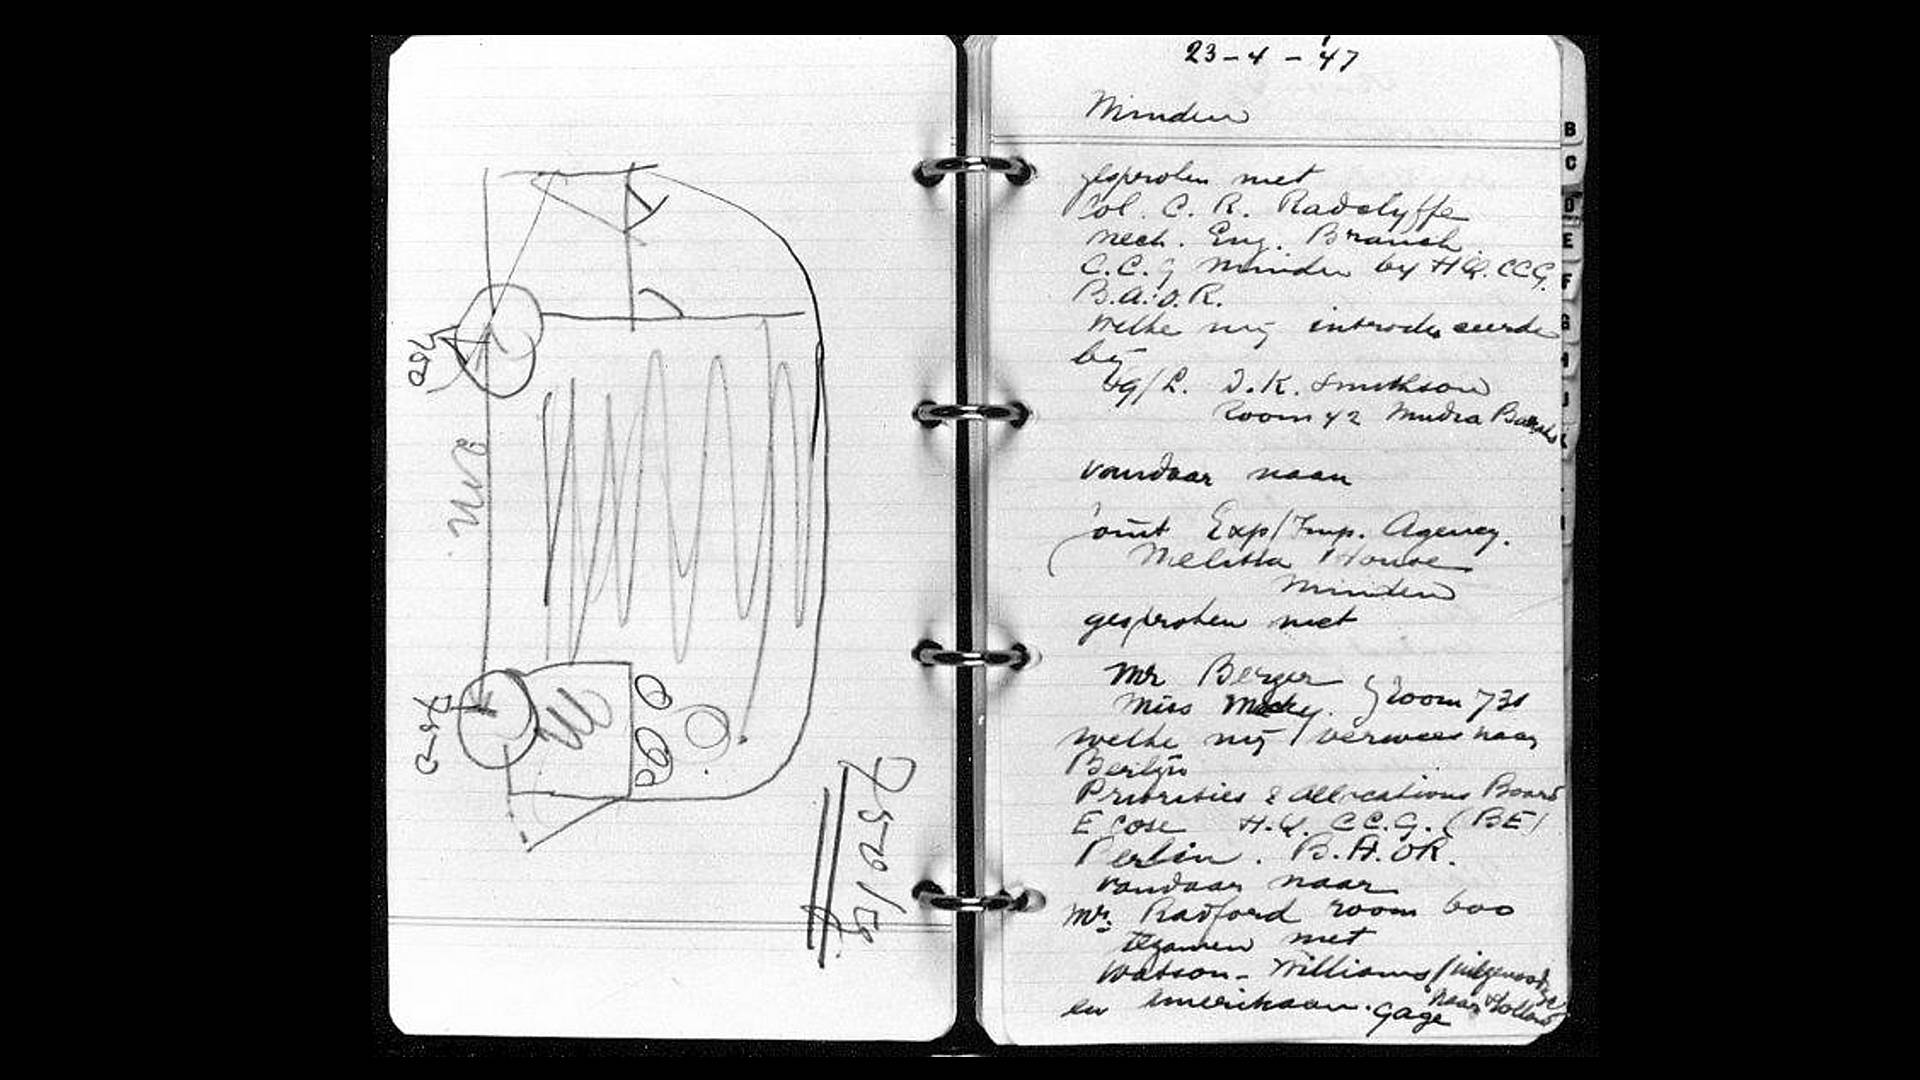 750 kg
750 kg
1500 kg
23-4-'47
Minden
gesproken met
Col. C. R. Radclyffe
Mech. Eng. Branch
C.C.G Minden by H.Q. CCG.
B.A.O.R.
welke mij introduceerde
bij
Bg/L. D.K. Smithson
Room 42 Mudra Barracks
vandaar naar
Joint Exp/Imp. Agency.
Melitta House
Minden
gesproken met
Mr Berger
Miss Macky. } Room 731
welke mij verwees naar
Berlijn
Priorities & Allocations Board
Ecose H.Q. CC.G. (BE)
Berlin. B.A.OR.
vandaar naar
Mr. Radford room 600
tezamen met
Watson-Williams (uitgenoodigd
naar Holland
en Amerikaan. Gage
B
C
D
E
F
G
H
J